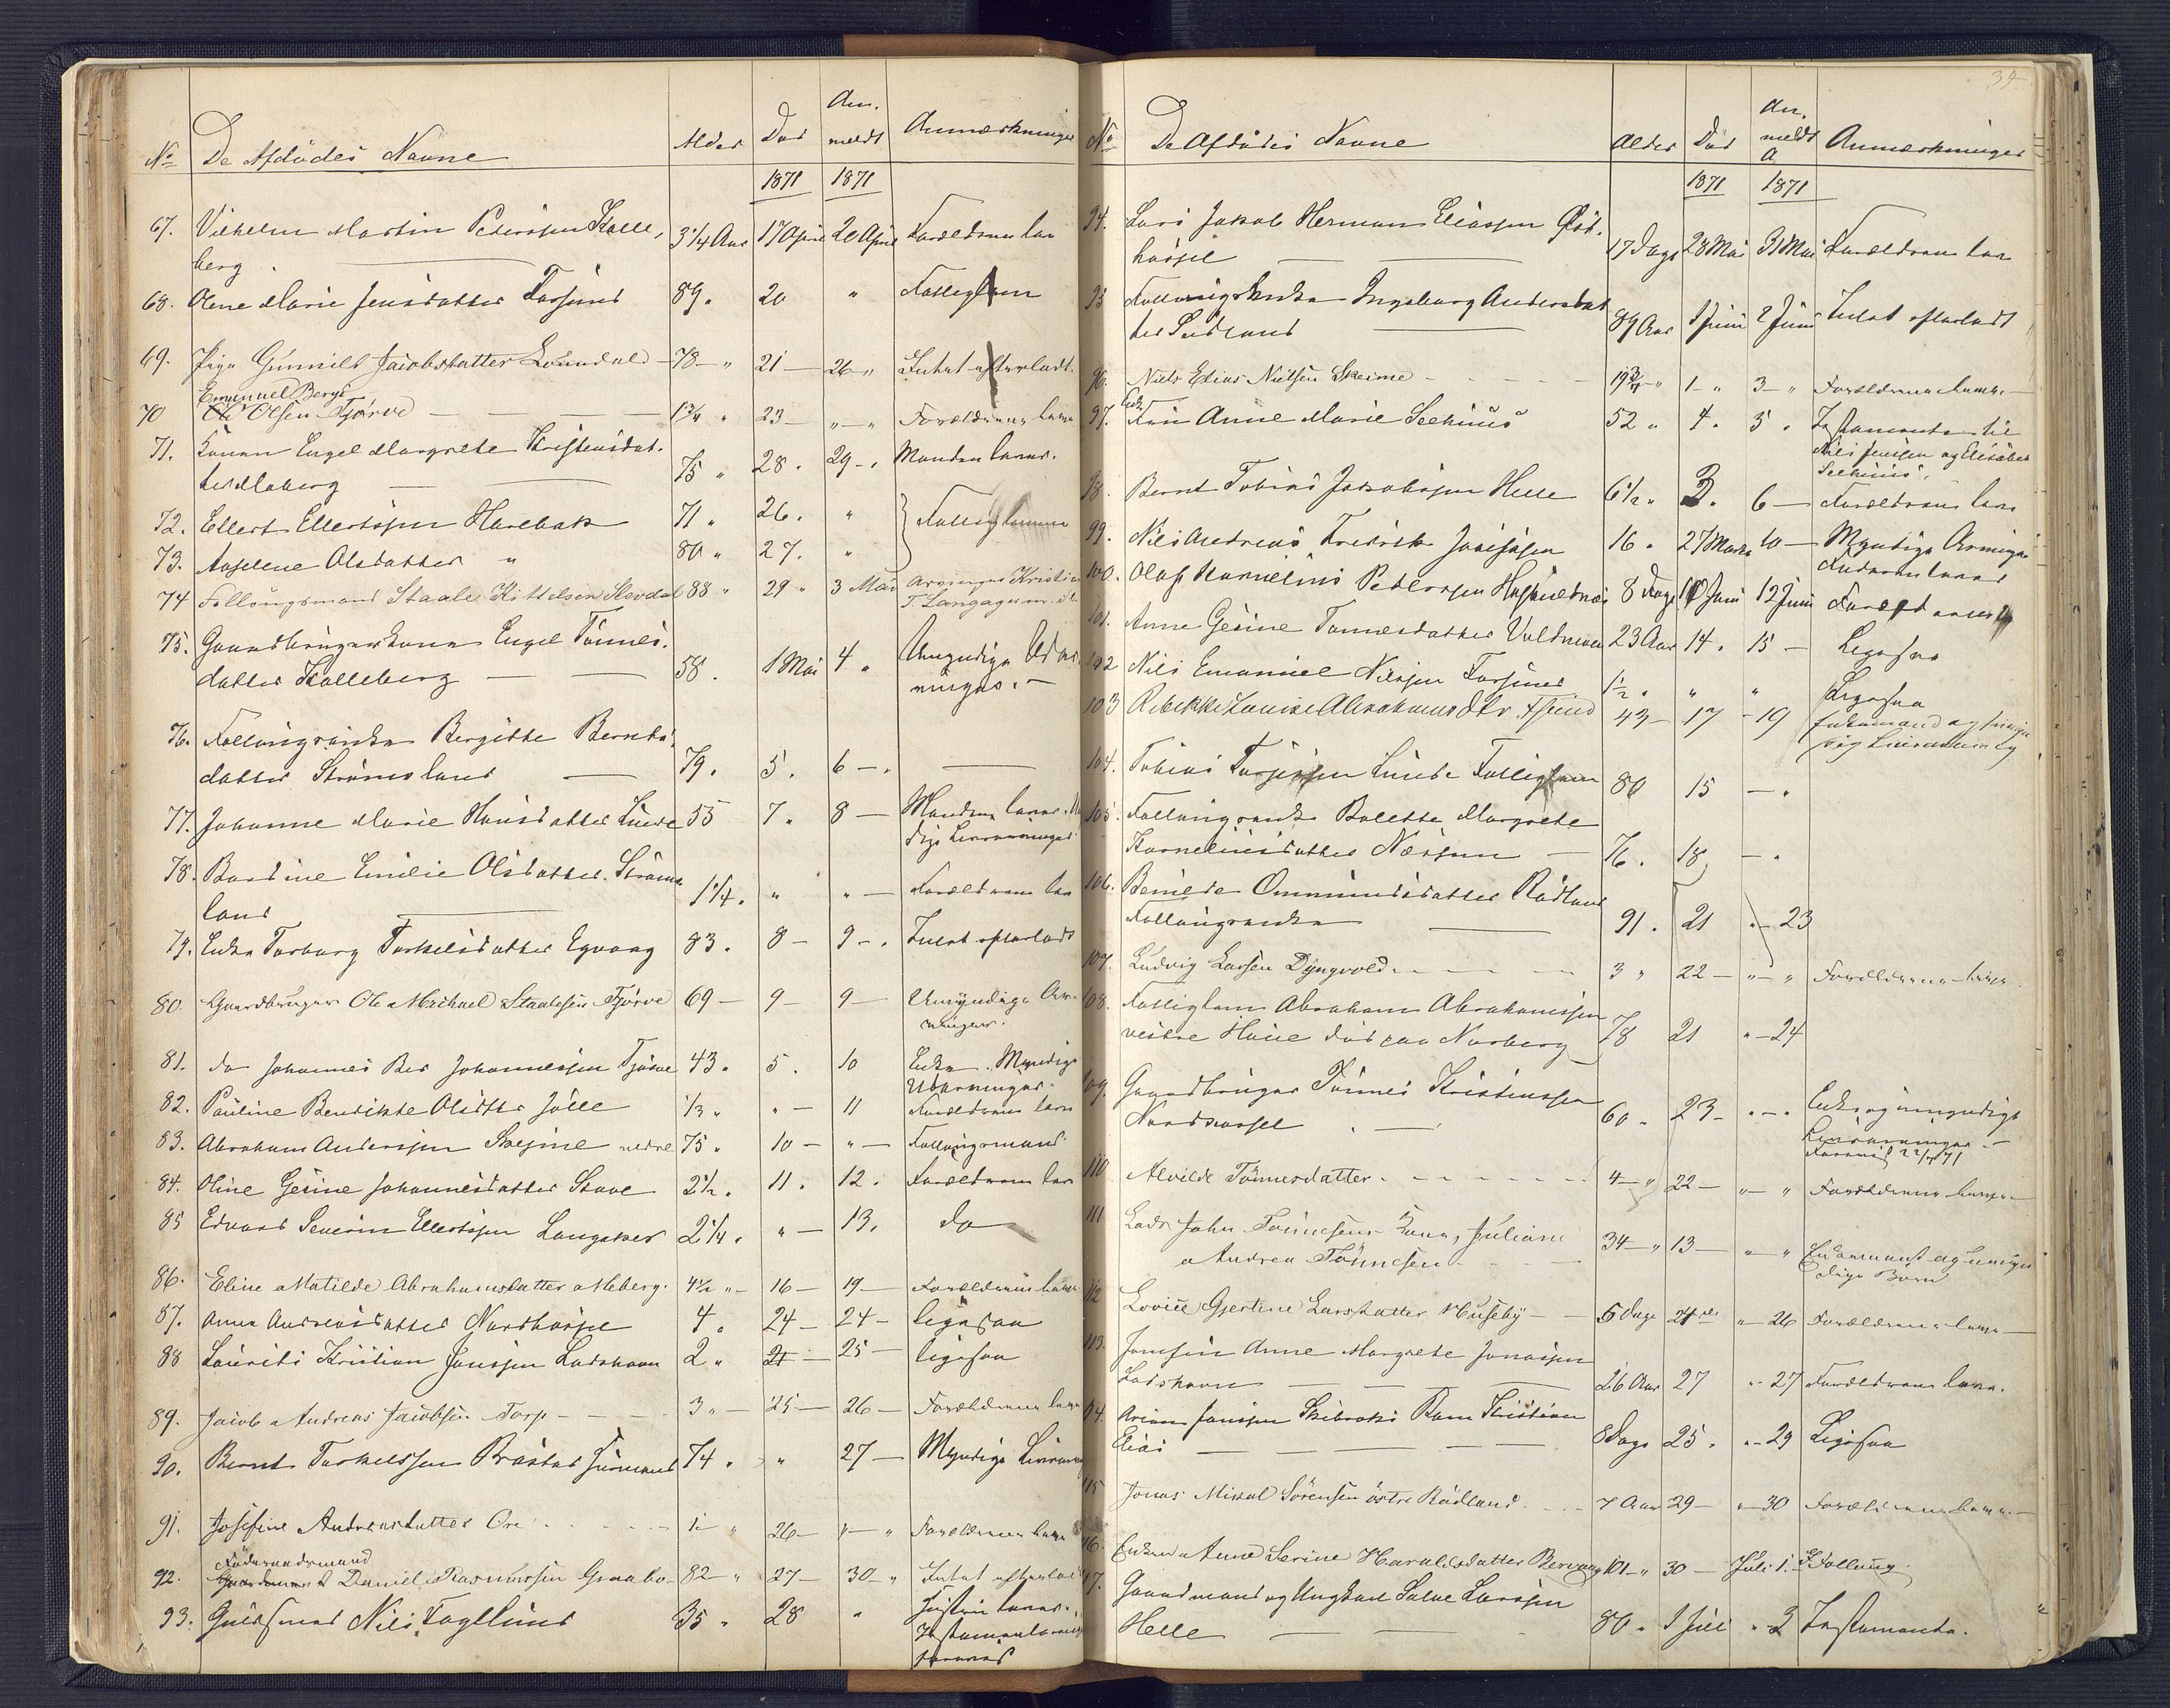 No De Afdødes Navne Alder Død An- meldt Anmærkninger
1871 1871
67. Vilhelm Martin Pedersen Kalle- 3 1/4 Aar 17 April 20 April Forældrene lever
berg
68. Olene Marie Jensdatter Farsund 89 20 " Fattiglem
69. Pige Gunnild Jacobsdatter Lomdal 78 " 21 — 26 " Intet efterladt.
Emanuel Bergs
70 Ole Olsen Tjørve 1 3/4 " 23 — " — " Forældrene lever
71. Konen Engel Margrete Kristensdat- 75 " 28. 29 — Manden lever.
ter Meberg
72. Ellert Ellertsen Harebak 71 " 26. " Fattiglemmer
73. Axelene Olsdatter " 80 " 27. "
74 Follougsmand Staale Kittelsen Skovdal 88 " 29 " 3 Mai Arvinger Kristian
T. Langager
75. Gaardbrugerkone Engel Tønnes- 58. 1 Mai 4 " Umyndige Udar-
datter Kalleberg vinger.
76. Follougsenke Bergitte Bernts- 79. 5. 6 —
datter Strømsland
77. Johanne Marie Hansdatter Lunde 55 7. 8 — Manden lever.
dige Livsarvinger
78. Bardine Emilie Olsdatter Strøms- 1 1/4. " " — Forældrene lever
land
79. Enke Torborg Torkelsdatter Egvaag 83. 8 — 9 —. Intet efterladt
80. Gaardbruger Ole Michael Staalesen Tjørve 69 — 9 — 9 — Umyndige Ar-
vinger.
81. do Johannes Ber Johannessen Tjørve 43. 5. 10 Enke. Myndige
Udarvinger.
82. Pauline Bendikte Olsdtr Jølle 1/3 " " — 11 Forældrene lever
83. Abraham Andersen Skejme nedre 75 " 10 — " — Follougsmand
84. Oline Gesine Johannesdatter Stave 2 1/2. 11. 12. Forældrene lever
85 Edvard Severin Ellertsen Langaker 2 1/4. " — 13. do
86. Eline Matilde Abrahamsdatter Meberg. 4 1/2 " — 16 — 19 — Forældrene lever
87. Anna Andreasdatter Nordhassel 4. 24 — 24 — ligesaa
88 Laurits Kristian Jonsen Loshavn 2 " 21 — 25 — ligesaa
89. Jacob Andreas Jacobsen Torp 3 " — 25 — 26 — Forældrene lever
90. Bernt Torkelssen Brastad Huusmand 74 " " 27 — Myndige Livsarv
91. Josefine Andreasdatter Ore 1 — " 26 — " — " Forældrene lever
Føderaadsmand
92. Daniel Rasmussen Graabo 82 — " 27 — 30 — " Intet efterladt
93. Guldsmed Nils Fagerlund 35 " 28 " Hustru lever.
Testamente
34
No De Afdødes Navne Alder Død An- meldt Anmærkninger
1871 1871
94. Lars Jakob Herman Eliassen Øst- 17 Dage 28 Mai 31 Mai Forældrene lever
hassel
95 Follougsenke Ingeborg Andersdat- 89 Aar 1 Juni 2 Juni Intet efterladt
ter Sudland
96. Niels Elias Nielsen Skeime 19 3/4 " 1 — " 3 — " Forældrene lever
97. Enke Fru Anne Marie Seehuus 52 " 4. 5. Testamente til
Nils Jensen og Elisabet
Seehuus.
98. Bernt Tobias Jakobsen Helle 6 1/2 " 3. 6 — Forældrene lever
99. Nils Andreas Fredrik Josefsen 16. 27 Marts 10 — Myndige Arvinger
100. Olaf Kornelius Pedersen Huseland 8 Dage 10 Juni 12 Juni Forældrene
101. Anne Gesine Tønnesdatter Valdmoen 23 Aar 14. 15 — Ligesaa
102 Nils Emanuel Nilssen Farsund 1/2 " " " Ligesaa
103 Rebekke Louise Abrahamsdtr. 43 — 17 — 19 Enkemand og
Livsarving
104. Tobias Torjesen Lunde Fattiglem 80 15 —.
105. Follougsenke Bolette Margrete
Korneliusdatter Næsseen 76. 18 —.
106. Benilde Ommundsdatter Rødland
Follougsenke 91. 21 " — 23
107. Ludvig Larsen Dyngvold 3 " 22 — " — " Forældrene lever
108. Fattiglem Abraham Abrahamsen
vestre Haue død paa Norberg 78 21 " — 24
109. Gaardbruger Tønnes Kristensen
Nordhassel 60 " 23 — " — " Enke og umyndige
Livsarvinger
110 Alvilde Tønnesdatter 4 — " 22 — " — " Forældrene lever
111 Lods John Tønnesens Kone, Juliane
Andrea Tønnesen 34 — " 13 — " " Enkemand og umyn-
dige Børn
112 Lovise Gjertine Larsdatter Huseby — 5 Dage 24 " — 26 Forældrene lever
113. Jomfru Anne Margrete Jonassen
Loshavn 26 Aar 27 " — 27 Forældrene lever.
114. Arian Jonsen Skibroks Barn Kristian
Elias 8 Dage 25. " — 29 Ligesaa
115 Jonas Mikal Sørensen østre Rødland 7 Aar 29 — " — 30 Forældrene lever
116. Enken Anne Serine Haraldsdatter Bervaag 101 — " 30 — Juli 1. Folloug.
117. Gaardmand og Ungkarl Salve Larsen
Helle 80. 1 Juli " 3 Testamente.